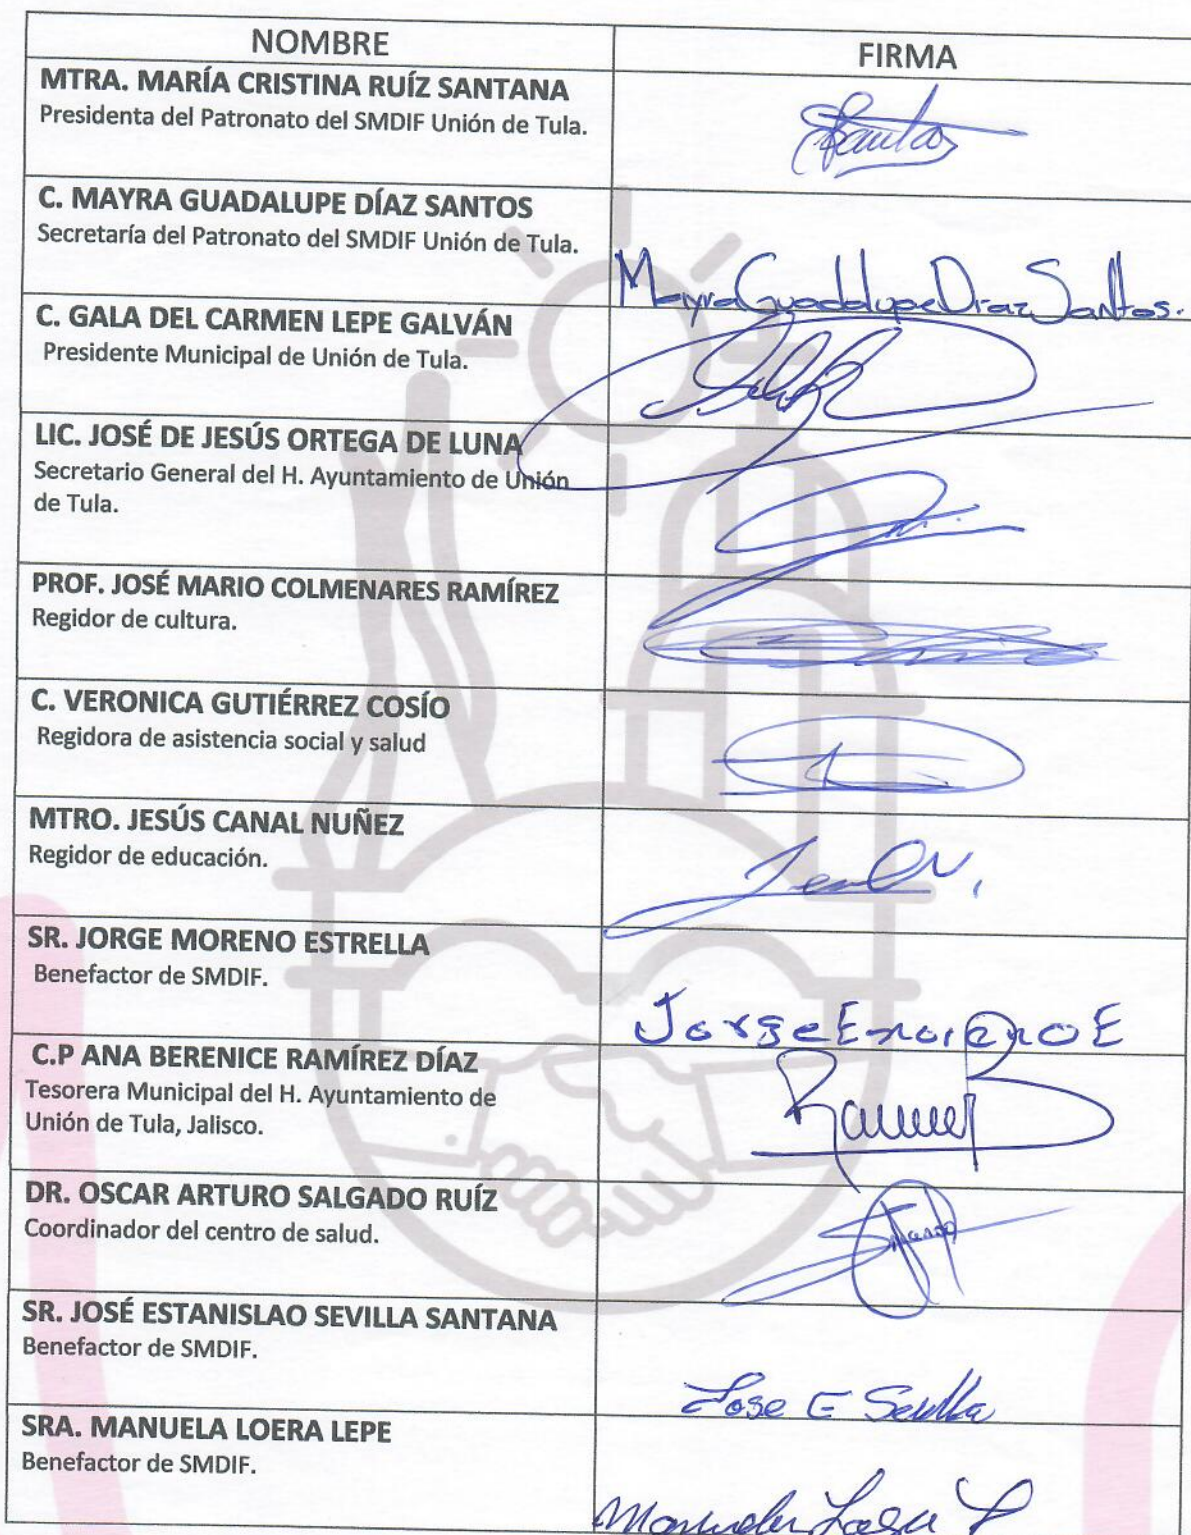 NOMBRE
FIRMA
MTRA. MARÍA CRISTINA RUÍZ SANTANA
Presidenta del Patronato del SMDIF Unión de Tula.
C. MAYRA GUADALUPE DÍAZ SANTOS
Secretaría del Patronato del SMDIF Unión de Tula.
Mayra Guadalupe Diaz Santos.
C. GALA DEL CARMEN LEPE GALVÁN
Presidente Municipal de Unión de Tula.
LIC. JOSÉ DE JESÚS ORTEGA DE LUNA
Secretario General del H. Ayuntamiento de Unión
de Tula.
PROF. JOSÉ MARIO COLMENARES RAMÍREZ
Regidor de cultura.
C. VERONICA GUTIÉRREZ COSÍO
Regidora de asistencia social y salud
MTRO. JESÚS CANAL NUÑEZ
Regidor de educación.
SR. JORGE MORENO ESTRELLA
Benefactor de SMDIF.
Jorge E
C.P ANA BERENICE RAMÍREZ DÍAZ
Tesorera Municipal del H. Ayuntamiento de
Unión de Tula, Jalisco.
DR. OSCAR ARTURO SALGADO RUÍZ
Coordinador del centro de salud.
SR. JOSÉ ESTANISLAO SEVILLA SANTANA
Benefactor de SMDIF.
Jose E Sevilla
SRA. MANUELA LOERA LEPE
Benefactor de SMDIF.
Manuela Loera L